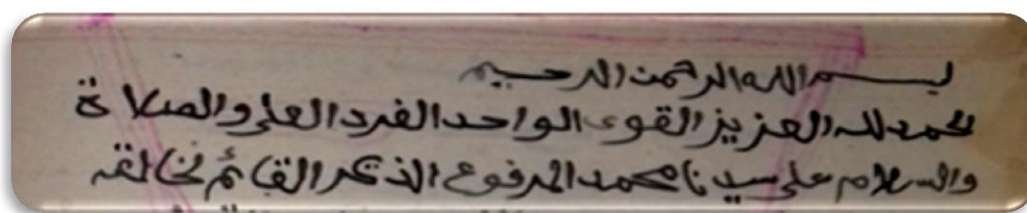 بسم الله الرحمن الرحيم
لحمد لله العزيز القوى الواحد الفرد العلي والصلاة
والسلام على سيدنا محمد المرفوع الذكر القائم لخالقه